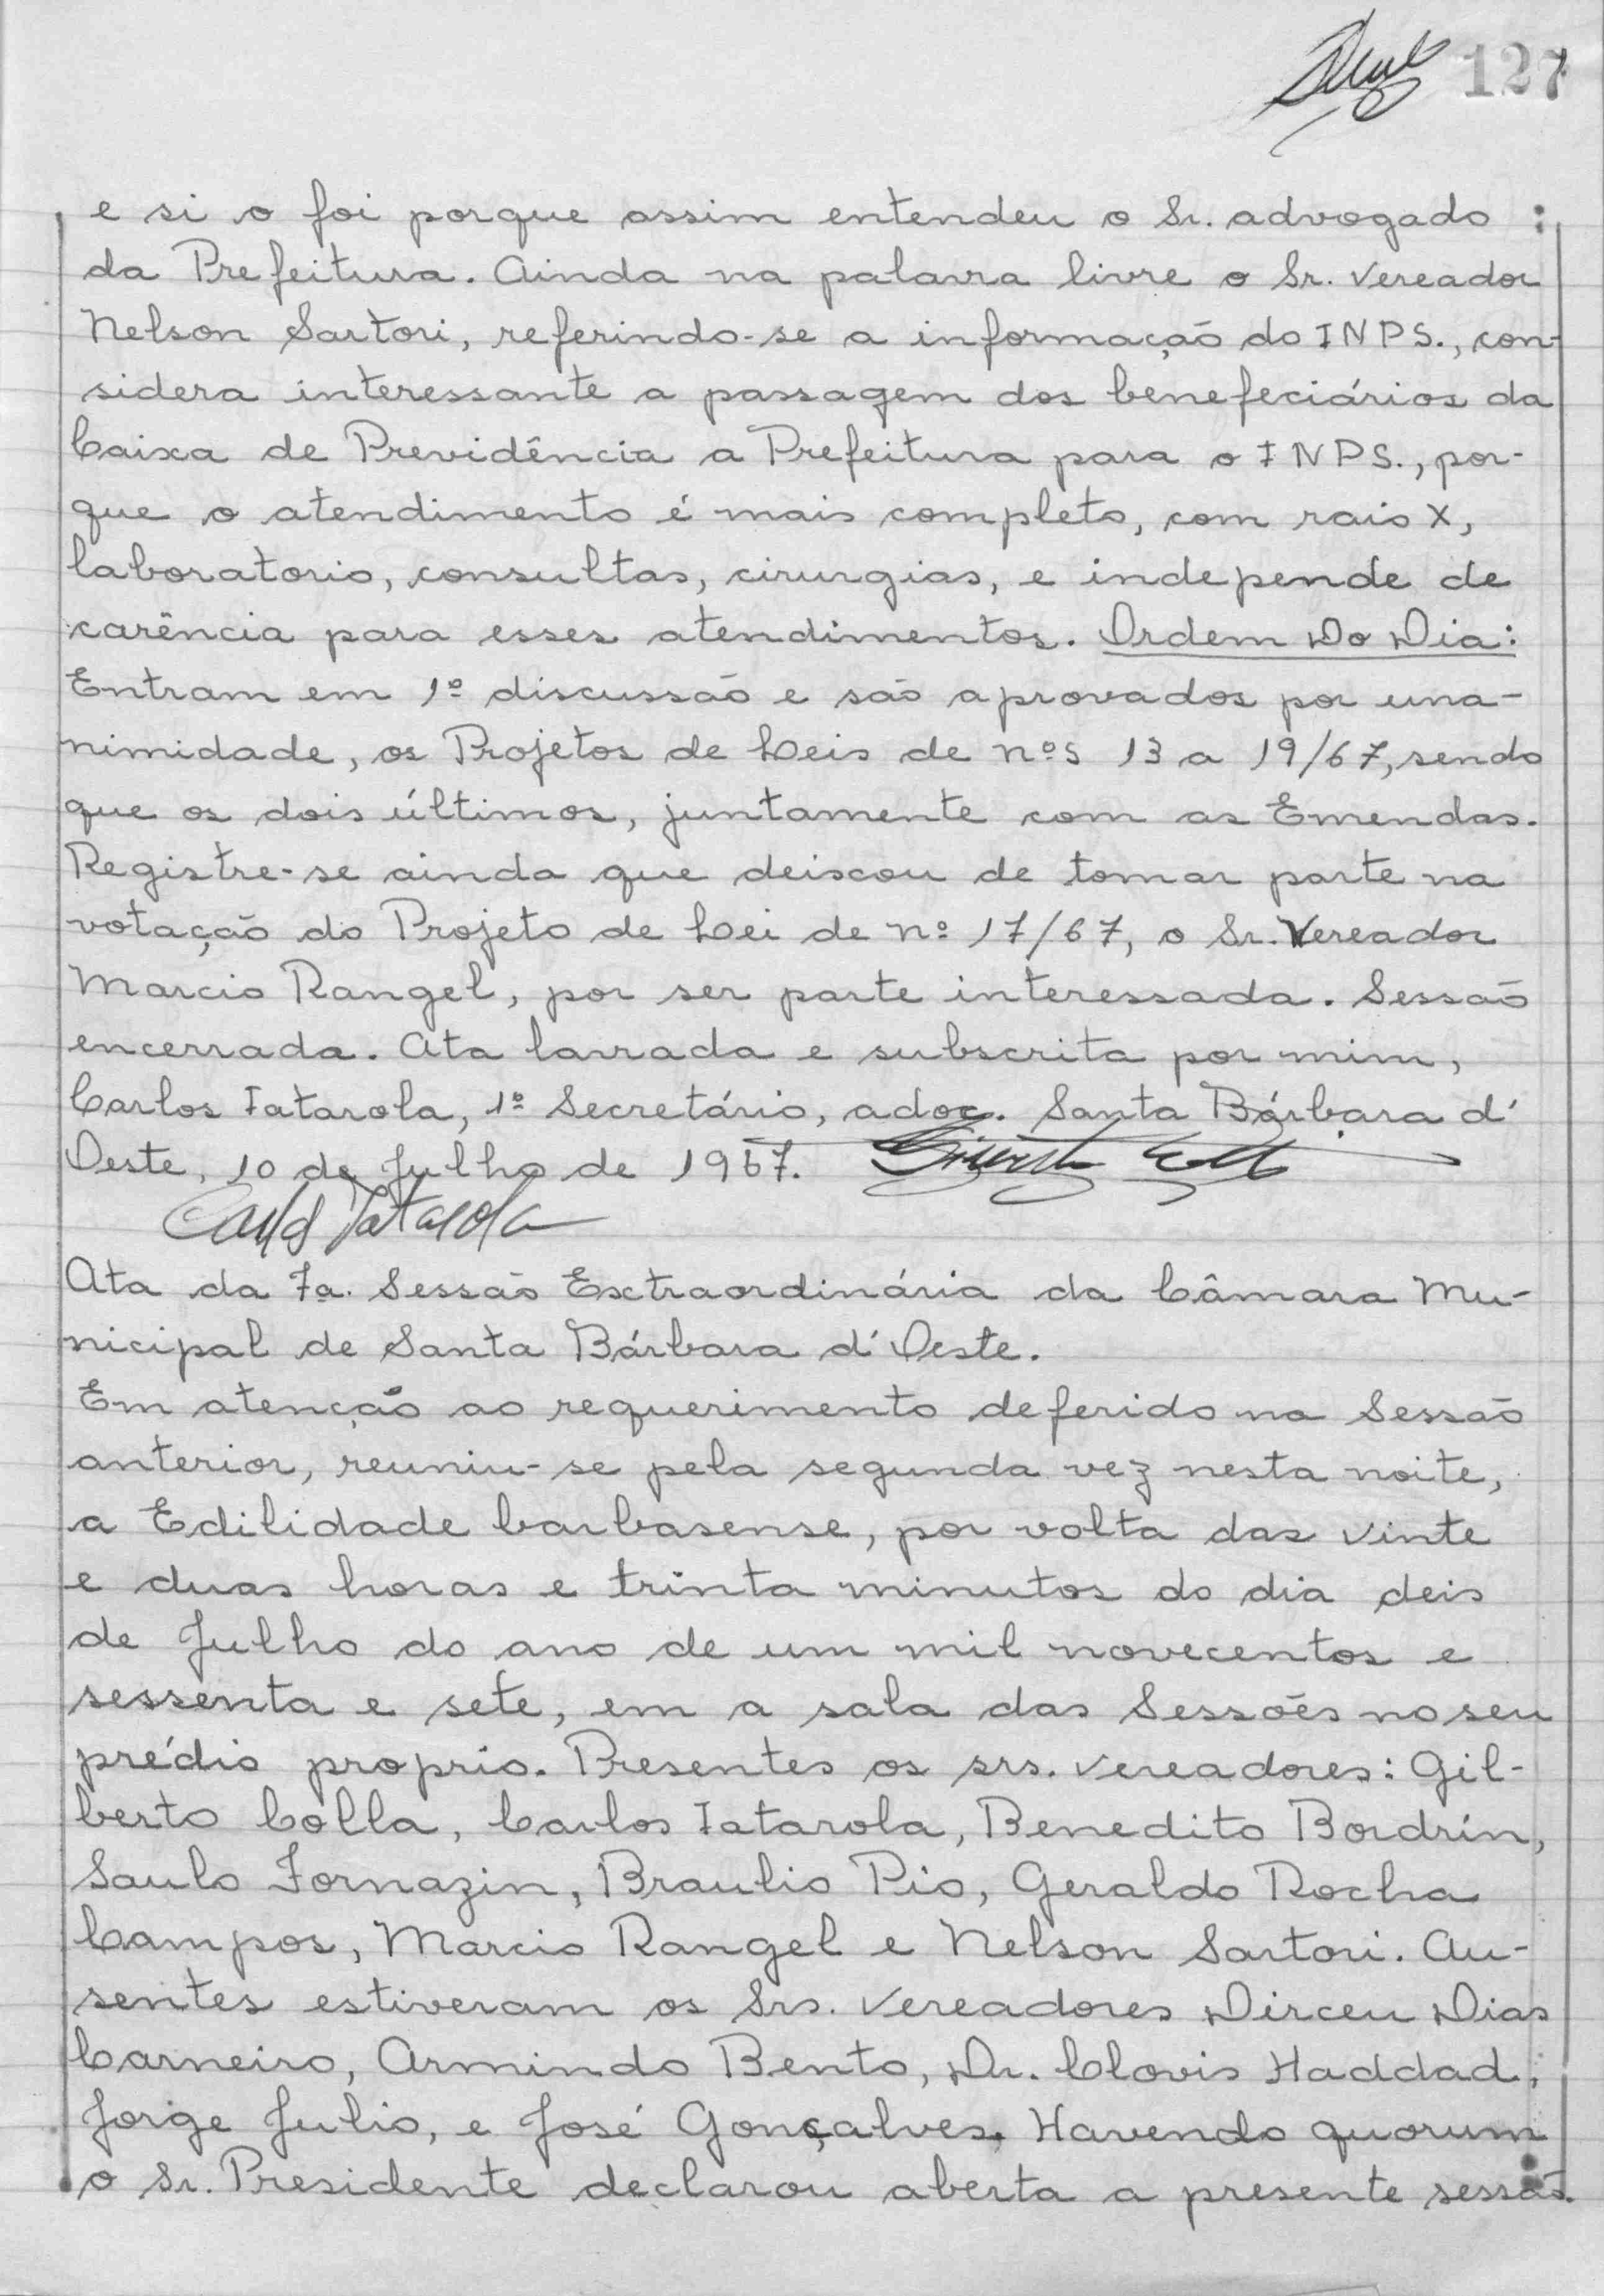 127
e si o foi porque assim entendeu o Sr. advogado
da Prefeitura. Ainda na palavra livre o Sr. Vereador
Nelson Sartori, referindo-se a informação do INPS., con-
sidera interessante a passagem dos benefeciários da
Caixa de Previdência a Prefeitura para o INPS., por-
que o atendimento é mais completo, com raio X,
laboratorio, consultas, cirurgias, e independe de
carência para esses atendimentos. Ordem Do Dia:
Entram em 1º discussão e são aprovados por una-
nimidade, os Projetos de Leis de nºs 13 a 19/67, sendo
que os dois últimos, juntamente com as Emendas.
Registre-se ainda que deixou de tomar parte na
votação do Projeto de Lei de nº 17/67, o Sr. Vereador
Marcio Rangel, por ser parte interessada. Sessão
encerrada. Ata lavrada e subscrita por mim,
Carlos Tatarola, 1º Secretário, adoc. Santa Bárbara d'
Oeste, 10 de Julho de 1967.
Carlos Tatarola
Ata da 7a. Sessão Extraordinária da Câmara Mu-
nicipal de Santa Bárbara d'Oeste.
Em atenção ao requerimento deferido na Sessão
anterior, reuniu-se pela segunda vez nesta noite,
a Edilidade barbasense, por volta das vinte
e duas horas e trinta minutos do dia deis
de Julho do ano de um mil novecentos e
sessenta e sete, em a sala das Sessões no seu
prédio proprio. Presentes os srs. vereadores: Gil-
berto Colla, Carlos Tatarola, Benedito Bordrin,
Saulo Fornazin, Braulio Pio, Geraldo Rocha
Campos, Marcio Rangel e Nelson Sartori. Au-
sentes estiveram os Srs. Vereadores Dirceu Dias
Carneiro, Armindo Bento, Dr. Clovis Haddad,
Jorge Julio, e José Gonçalves. Havendo quorum
o Sr. Presidente declarou aberta a presente sessão.